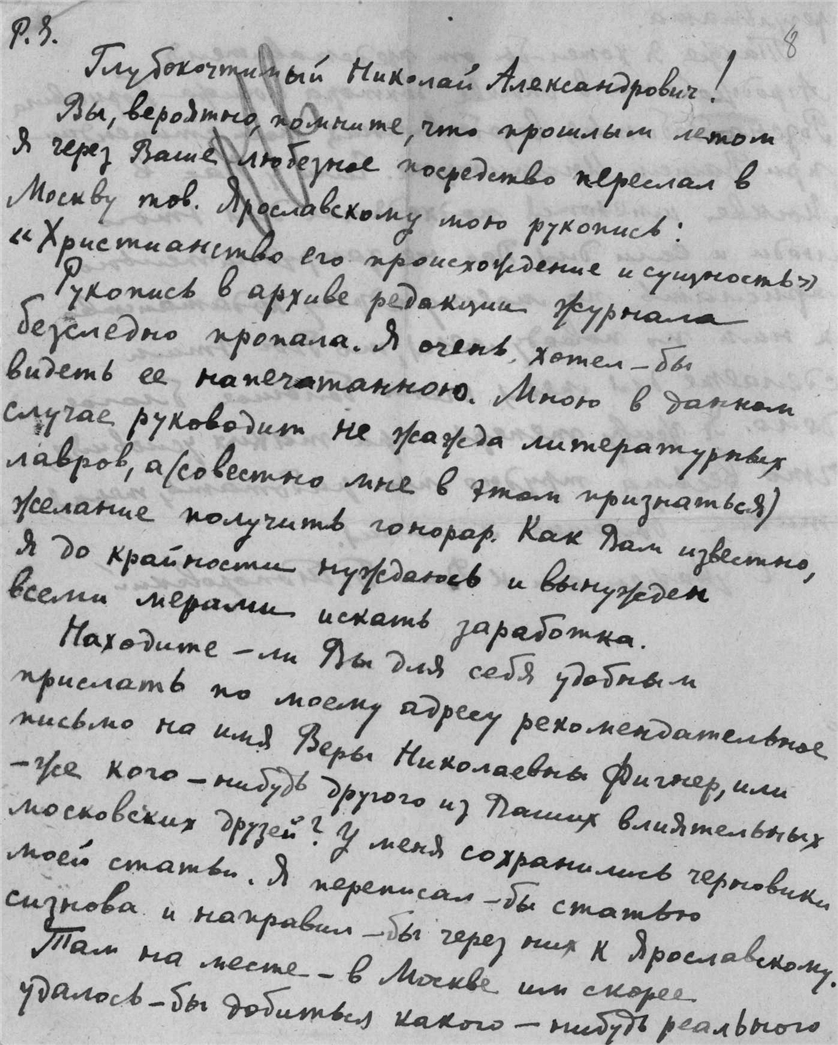 P.S.
8
Глубокочтимый Николай Александрович!
Вы, вероятно, помните, что прошлым летом
я через Ваше любезное посредство переслал в
Москву тов. Ярославскому мою рукопись:
"Христианство его происхождение и сущность"
Рукопись в архиве редакции журнала
безследно пропала. Я очень хотел-бы
видеть ее напечатанною. Мною в данном
случае руководит не жажда литературных
лавров, а (совестно мне в этом признаться)
желание получить гонорар. Как Вам известно,
я до крайности нуждаюсь и вынужден
всеми мерами искать заработка.
Находите-ли Вы для себя удобным
прислать по моему адресу рекомендательное
письмо на имя Веры Николаевны Фигнер, или
-же кого-нибудь другого из Ваших влиятельных
московских друзей? У меня сохранились черновики
моей статьи. Я переписал-бы статью
сызнова и направил-бы через них к Ярославскому.
Там на месте - в Москве им скорее
удалось-бы добиться какого-нибудь реального